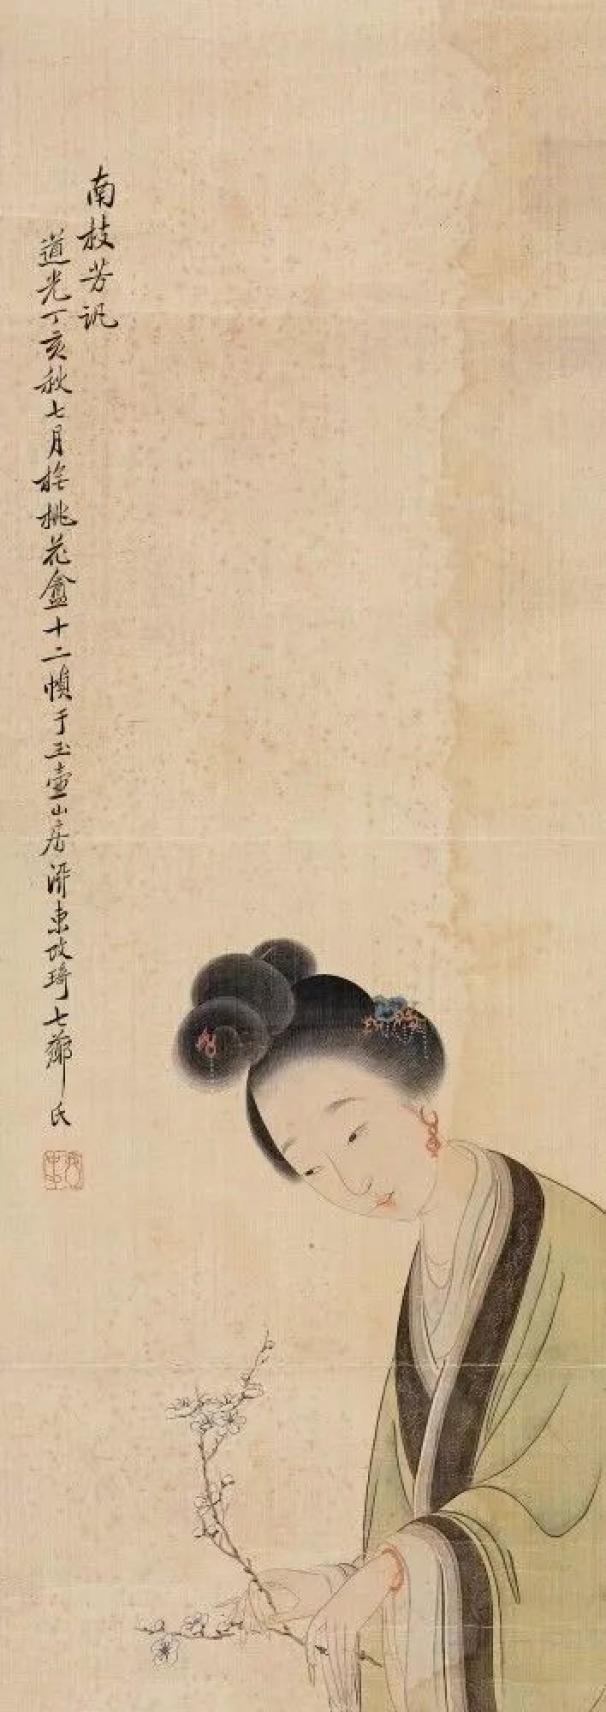 南枝芳訊
道光丁亥秋七月橅桃花盦十二幀于玉壺山房泖東改琦七薌氏